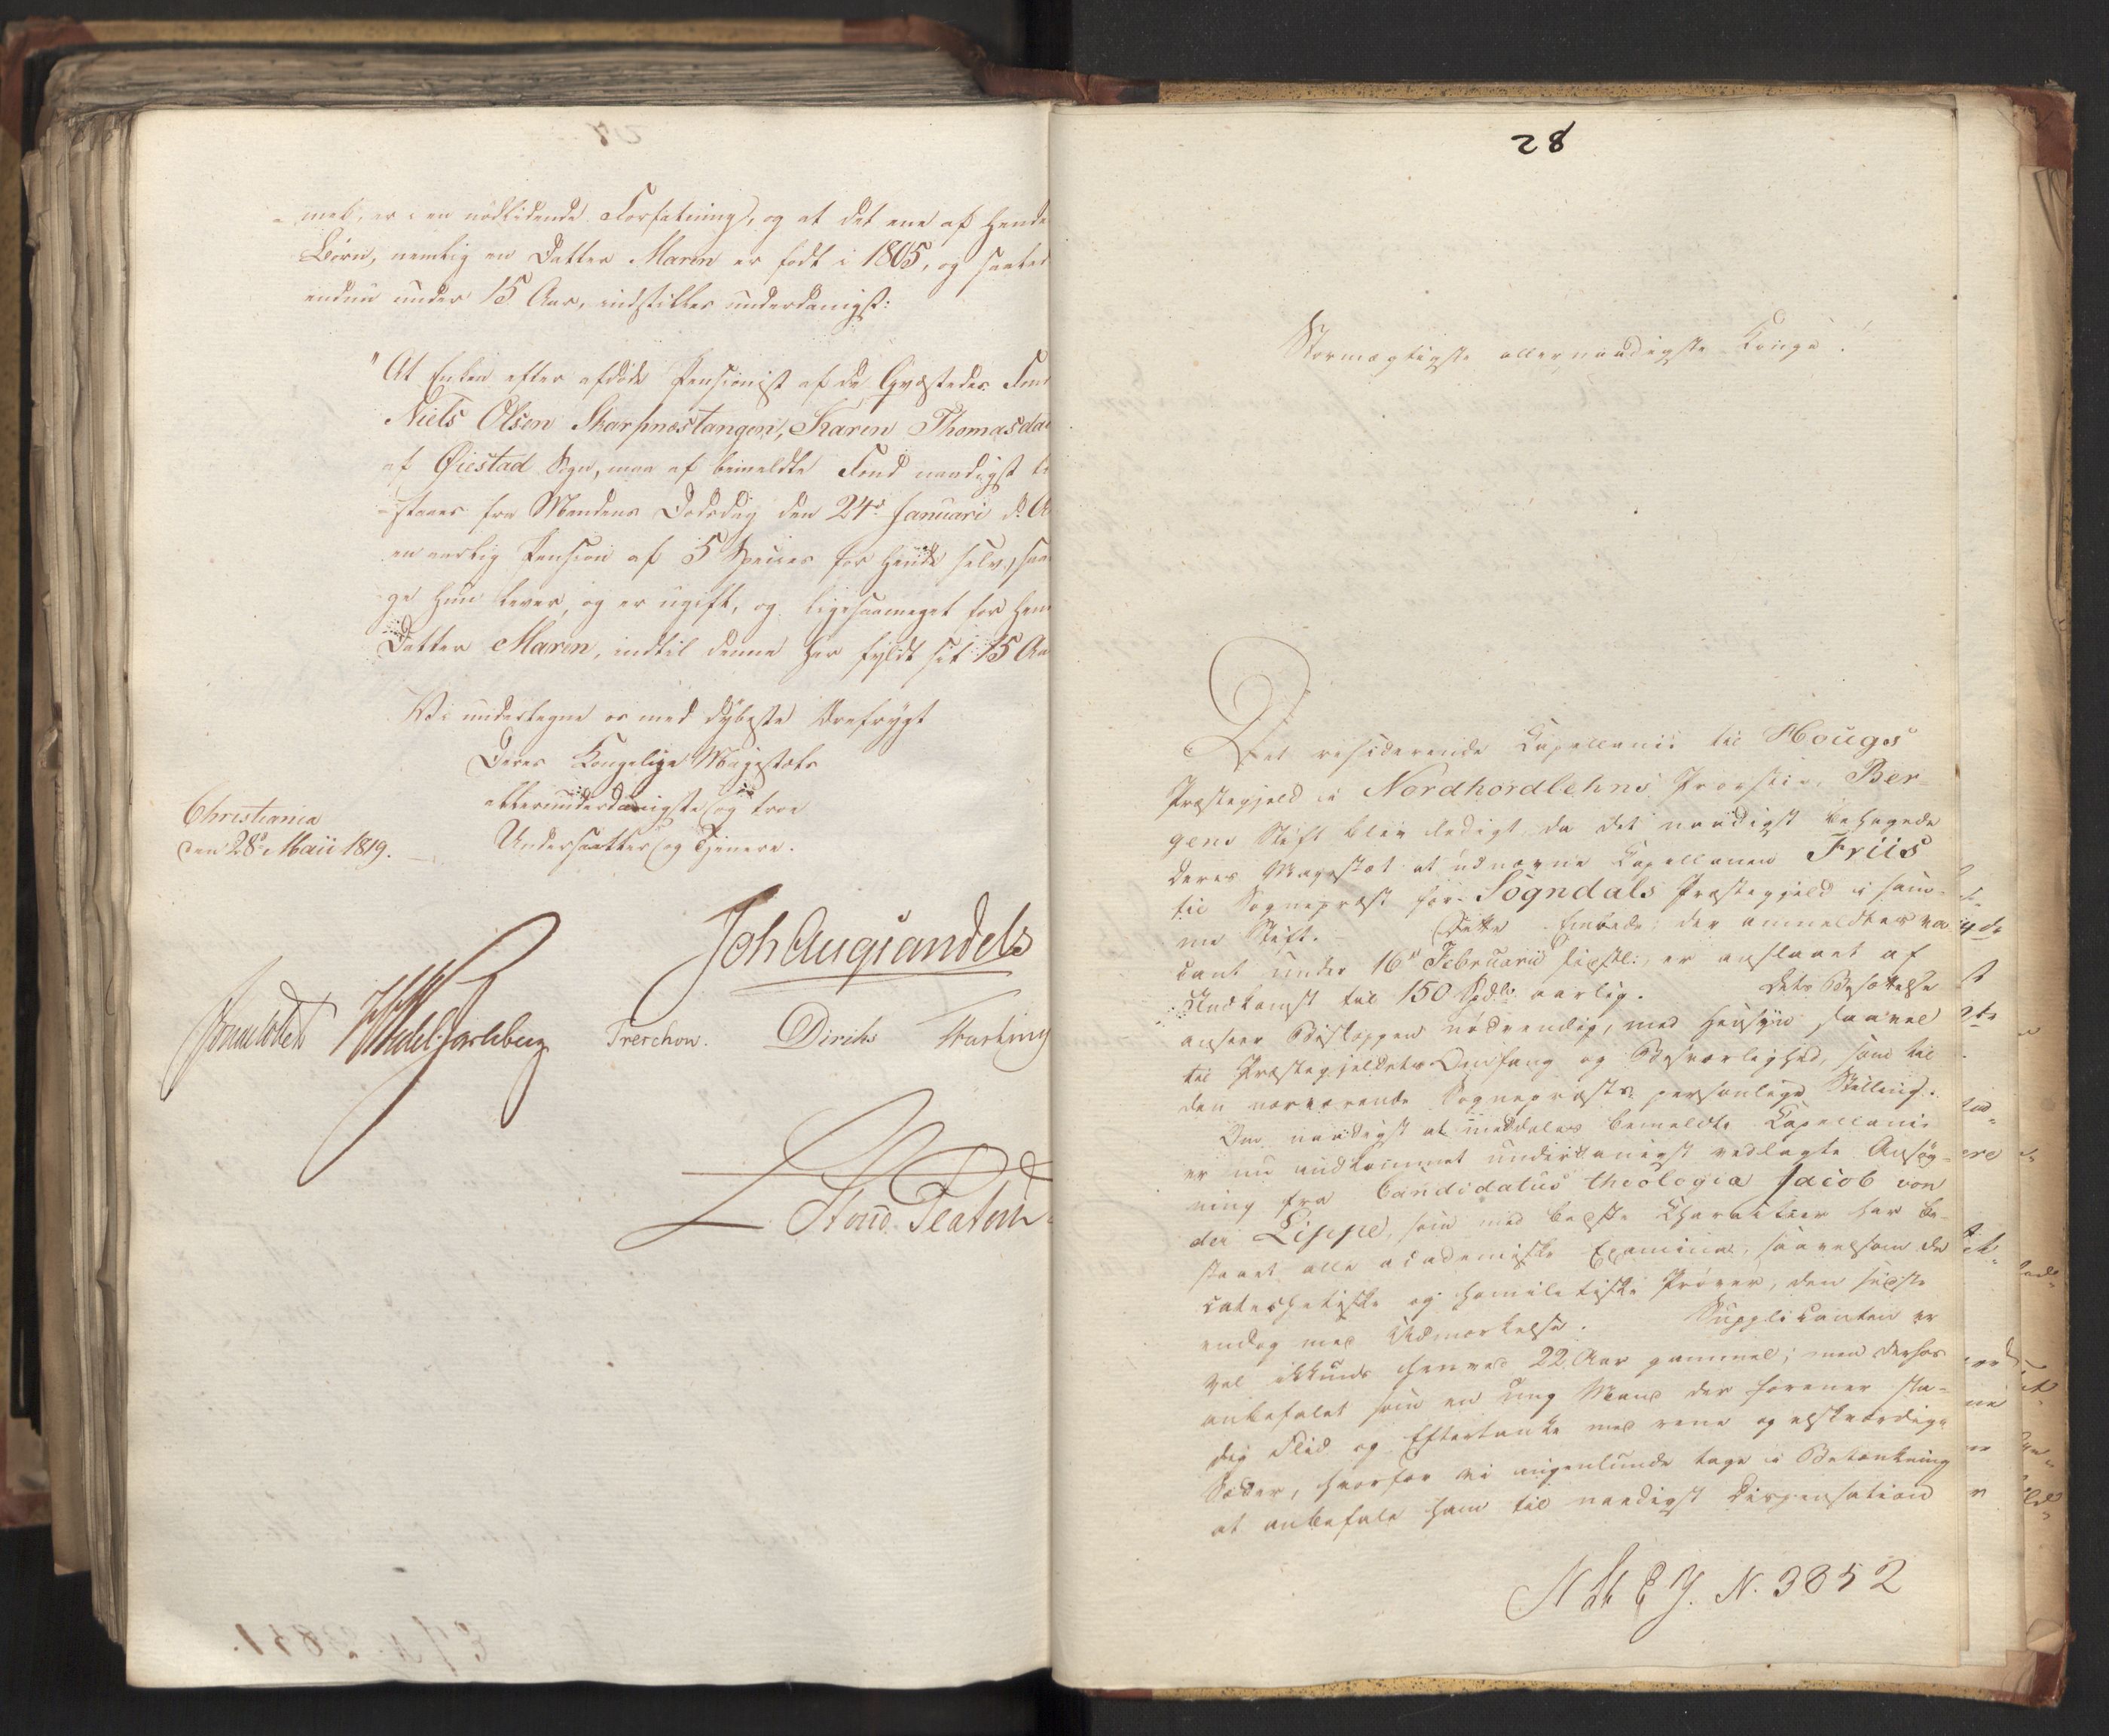 -met, er i en nödlidende Forfatning, og at det ene af hende
Börn, nemlig en Datter Maren er født i 1805, og saaled
endnu under 15 Aar, indstilles underdanigst:
"At Enken efter afdöde Pensionist af de Qvæstedes Fon
Niels Olsen Skarpnæstangen, Karen Thomasda
af Øiestad Sogn, maa af bemeldte Fond naadigst ti
-staaes fra Mandens Dødsdag den 24de Januari d. A
en aarlig Pension af 5 Species for hende selv, saa
ge hun lever, og er ugift, og ligesaameget for hen
Datter Maren, indtil denne har fyldt sit 15 Aa
Vi undertegne os med dybeste Ærefrygt
Deres Kongelige Majestæts
allerunderdanigste og troe
Undersaatter og Tjenere.
Christiania
den 28de Maii 1819.
Joh Aug Sandels
Sommerhielm Wedel Jarlsberg Treschow. Diriks Fasting
Houd. Platou
28
Stormægtigste allernaadigste Konge!
Det residerende Capellanie til Hougs
Præstegjeld i Nordhordlehns Provstie, Ber-
gens Stift blev ledigt da det naadigst behagede
Deres Majestæt at udnævne Capellanen Friis
til Sognepræst for Sogndals Præstegjeld i sam-
me Stift. Dette Embede, der anmeldtes va
cant under 16de Februarii sidstl:, er anslaaet af
Indkomst til 150 Spdlr aarlig. Dets Besættelse
anseer Biskoppen nødvendig, med Hensyn saavel
til Præstegjeldets Omfang og Besværlighed, som til
den nærværende Sognepræsts personlige Stilling.
Om naadigst at meddeles bemeldte Capellanie
er nu indkommet underdanigst vedlagte Ansøg-
ning fra Candidatus theologia Jacob von
der Lippe, som med bedste Charakteer har be-
staaet alle academiske Examina, saavelsom de
catechetiske og homiletiske Prøver, den sidste
endog med Udmærkelse. Supplicanten er
vel ikkuns henved 22 Aar gammel; men derhos
anbefalet som en ung Mand der forener sta-
dig Flid og Eftertanke med rene og elskværdige
Sæder, hvorfor vi ingenlunde tage i Betænkning
at anbefale ham til naadigst Dispensation
N. 3852